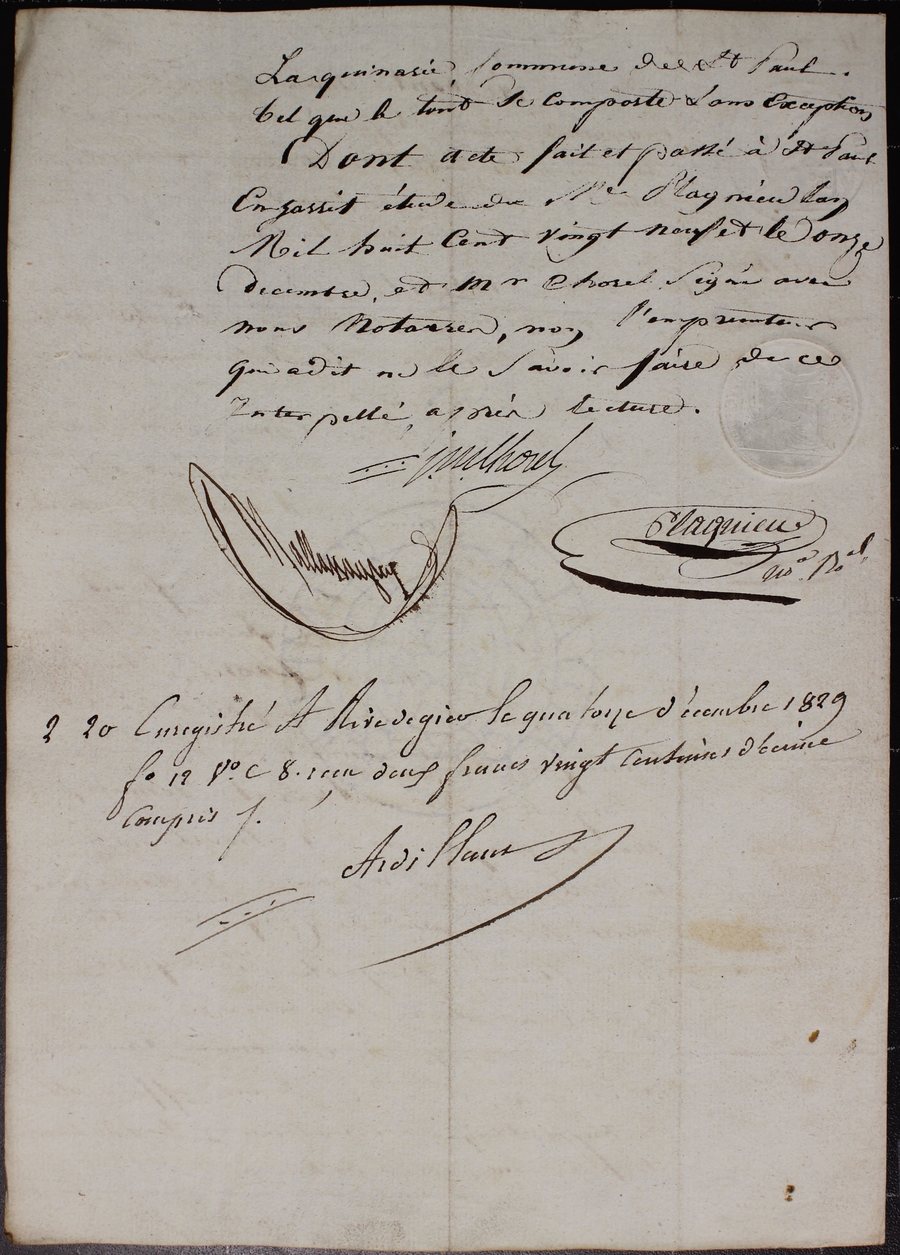 Laquinarie, Commune de St Paul.
tel que le tout se composte Sans Exception
Dont acte fait et passé à St Paul
En Jarrit étude de Me Plagnieu L'an
Mil huit Cent vingt neuf et le onze
decembre, et Mr Chorel Signé avec
nous Notaires, non l'emprunteur
qui a dit ne le Savoir faire de ce
Interpellé, après lecture.
Chorel
Plagnieu
No. Ral.
2 20 Enregistré A Rivedegier le quatorze décembre 1829
fo 12 Vo. C 8. reçu deux francs vingt Centimes décime
Compris
Ardillaux